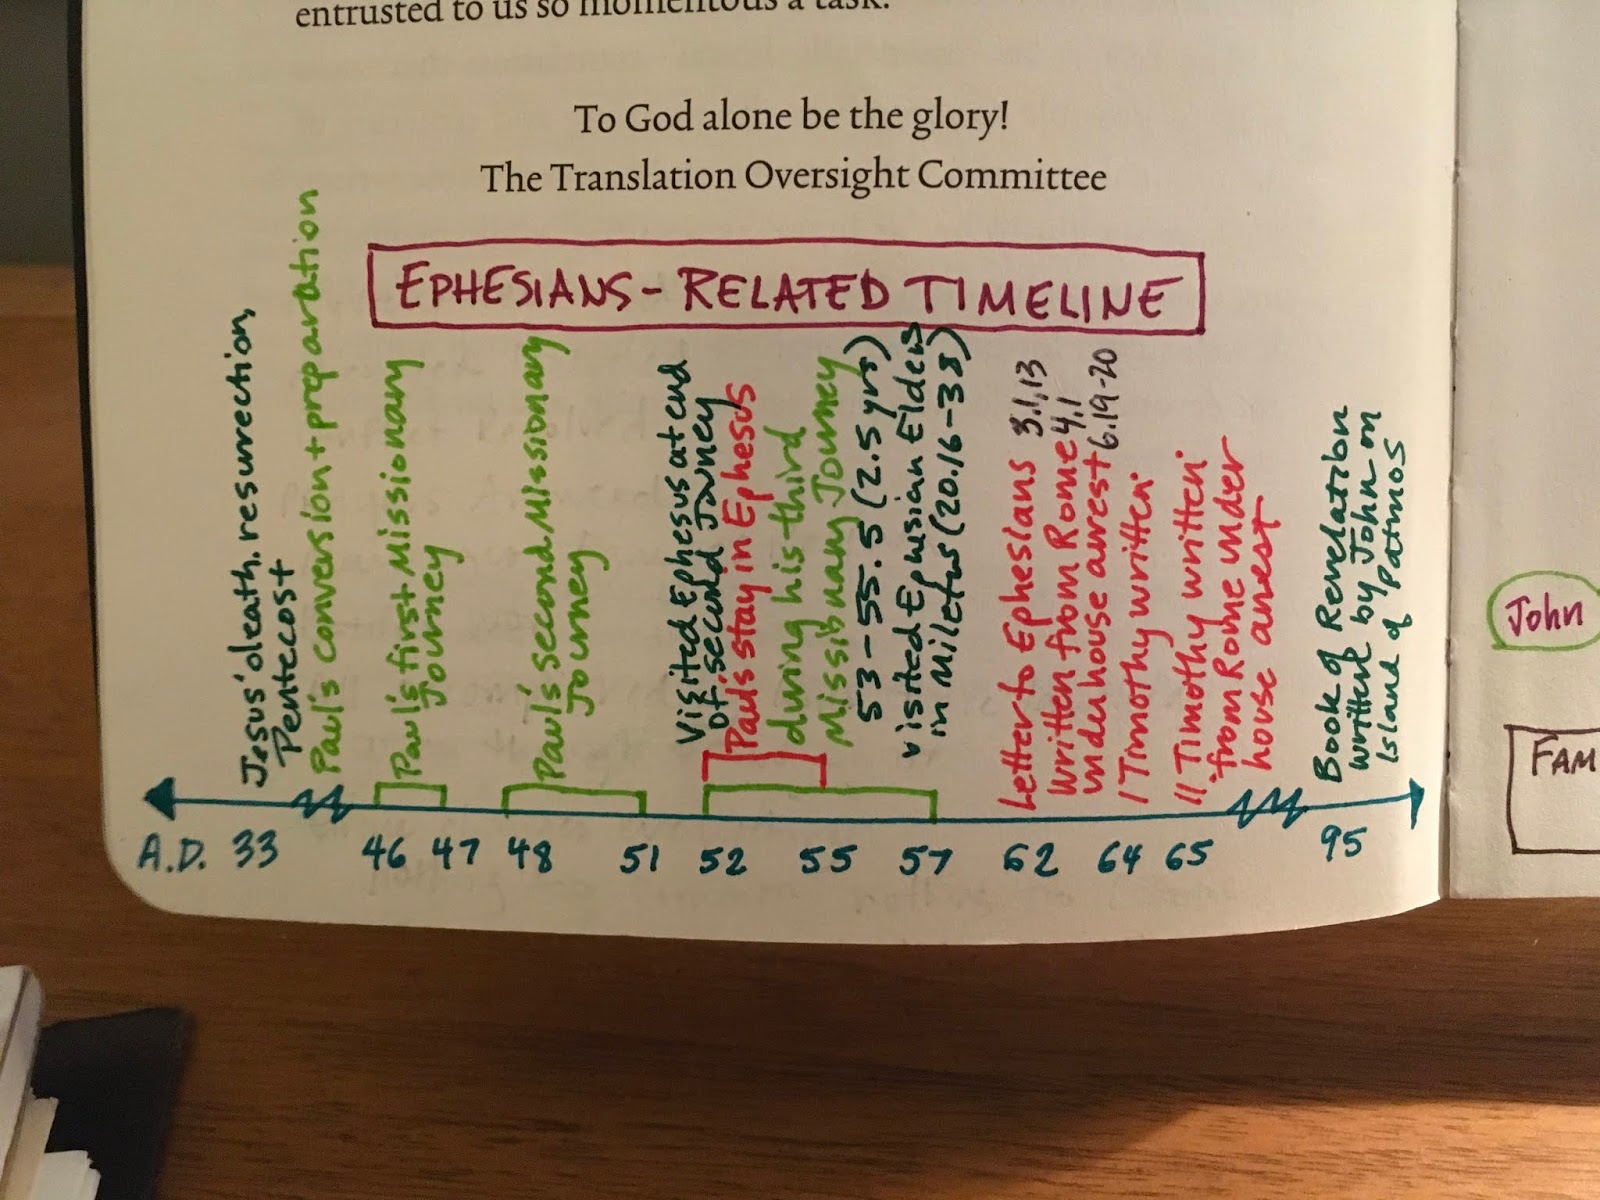 entrusted to us so momentous a task.
To God alone be the glory!
The Translation Oversight Committee
EPHESIANS - RELATED TIMELINE
Jesus' death, resurrection,
Pentecost
Paul's conversion + preparation
Paul's first Missionary
Journey
Paul's second Missionary
Journey
Visited Ephesus at end
of second Journey
Paul's stay in Ephesus
during his third
Missionary Journey
53-55.5 (2.5 yrs)
visited Ephesian Elders
in Miletus (20.16-38)
Letter to Ephesians 3.1,13
written from Rome 4.1
under house arrest 6.19-20
1 Timothy written
11 Timothy written
from Rome under
house arrest
Book of Revelation
written by John on
Island of Patmos
A.D. 33 46 47 48 51 52 55 57 62 64 65 95
John
FAM